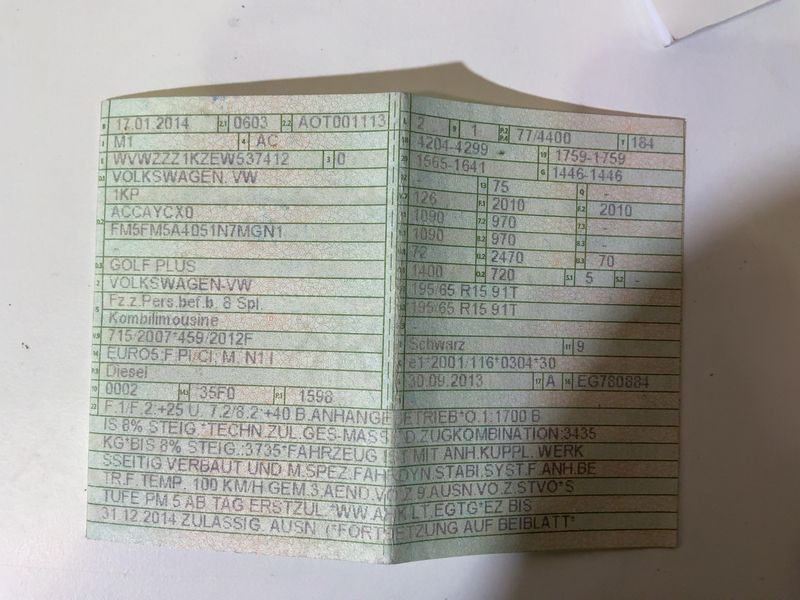 B 17.01.2014 2.1 0603 2.2 AOT001113
J M1 4 AC
E WVWZZZ1KZEW537412 3 0
D.1 VOLKSWAGEN, VW
1KP
D.2 ACCAYCX0
FM5FM5A4051N7MGN1
-
D.3 GOLF PLUS
2 VOLKSWAGEN-VW
5 Fz.z.Pers.bef.b. 8 Spl.
Kombilimousine
V.9 715/2007*459/2012F
14 EURO5;F;PI/CI; M, N1 I
P.3 Diesel
10 0002 14.1 35F0 P.1 1598
L 2 9 1 P.2 P.4 77/4400 T 184
18 4204-4299 19 1759-1759
20 1565-1641 G 1446-1446
12 - 13 75 Q -
V.7 126 F.1 2010 F.2 2010
7.1 1090 7.2 970 7.3 -
8.1 1090 8.2 970 8.3 -
U.1 72 U.2 2470 U.3 70
O.1 1400 O.2 720 S.1 5 S.2 -
195/65 R15 91T
195/65 R15 91T
-
R Schwarz 11 9
K e1*2001/116*0304*30
6 30.09.2013 17 A 16 EG780884
22 F.1/F.2:+25 U. 7.2/8.2:+40 B.ANHANGEBETRIEB*O.1:1700 B
IS 8% STEIG.*TECHN.ZUL.GES-MASSE D.ZUGKOMBINATION:3435
KG*BIS 8% STEIG.:3735*FAHRZEUG IST MIT ANH.KUPPL. WERK
SSEITIG VERBAUT UND M.SPEZ.FAHRDYN.STABI.SYST.F.ANH.BE
TR.F.TEMP. 100 KM/H GEM.3.AEND.VO.Z.9.AUSN.VO.Z.STVO*S
TUFE PM 5 AB TAG ERSTZUL.*WW.AHK LT.EGTG*EZ BIS
31.12.2014 ZULASSIG, AUSN. (*FORTSETZUNG AUF BEIBLATT*